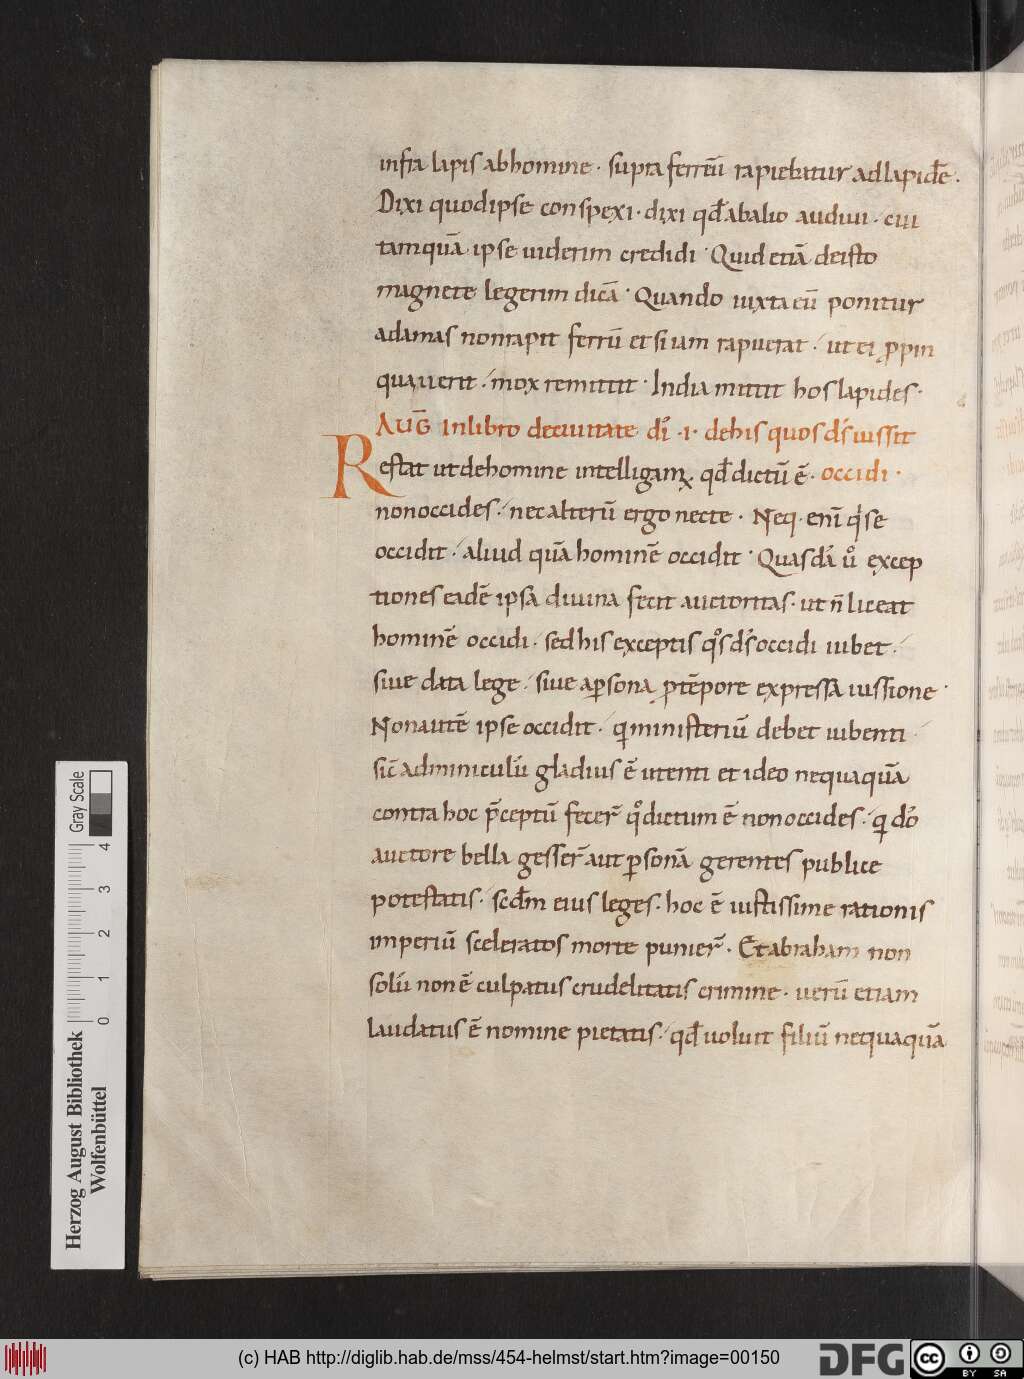 infra lapis abhomine · supra ferreū rapiebatur adlapidē ·
Dixi quodipse conspexi · dixi qđ abalio audiui · cui
tamquā ipse uiderim credidi · Quid etiā deisto
magnete legerim dicā · Quando iuxta eū ponitur
adamas nonrapit ferrū et si iam rapuerat · ut ei ꝓpin
quauerit · mox remittit · India mittit hos lapides ·
AUG̅ Inlibro deciuitate dī · i · dehis quos dš iussit
Restat ut dehomine intelligamꝰ · qđ dictū ē · occidi ·
nonoccides · nec alterū ergo nec te · Neq · eni̅ qͥ se
occidit · aliud quā hominē occidit · Quasdā ůo excep
tiones eadē ipsa diuina fecit auctoritas · ut n̄ liceat
hominē occidi · sed his exceptis qͦs dš occidi iubet ·
siue data lege · siue aꝑsona ꝓtēpore expressa iussione ·
Nonautē ipse occidit · qui ministeriū debet iubenti ·
sic̄ adminiculū gladius ē utenti et ideo nequaquā
contra hoc p̄ceptū fecer̄ qͦ dictum ē nonoccides · qui dō
auctore bella gesser̄ aut ꝑsonā gerentes publice
potestatis · scđm eius leges · hoc ē iustissime rationis
imperiū sceleratos morte punier̄ · Et abraham non
solū non ē culpatus crudelitatis crimine · uerū etiam
laudatus ē nomine pietatis · qđ uoluit filiū nequaquā
Herzog August Bibliothek
Wolfenbüttel
Gray Scale
0 1 2 3 4
(c) HAB http://diglib.hab.de/mss/454-helmst/start.htm?image=00150
DFG
cc BY SA